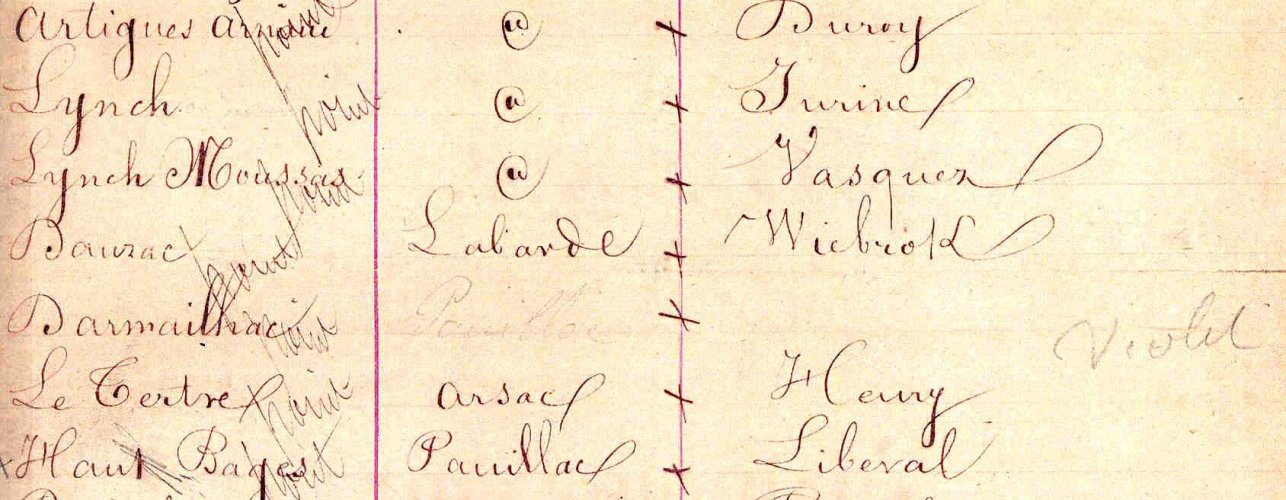 Artigues Arnaud @ x Duroy
point
Lynch @ x Jurine
point
Lynch Moussas @ x Vasquez
point
Bauzac Labarde x Wiebrok
point
Darmailhac Pauillac x Violet
point
Le Tertre Arsac x Henry
point
x Haut Bages Pauillac x Liberal
point